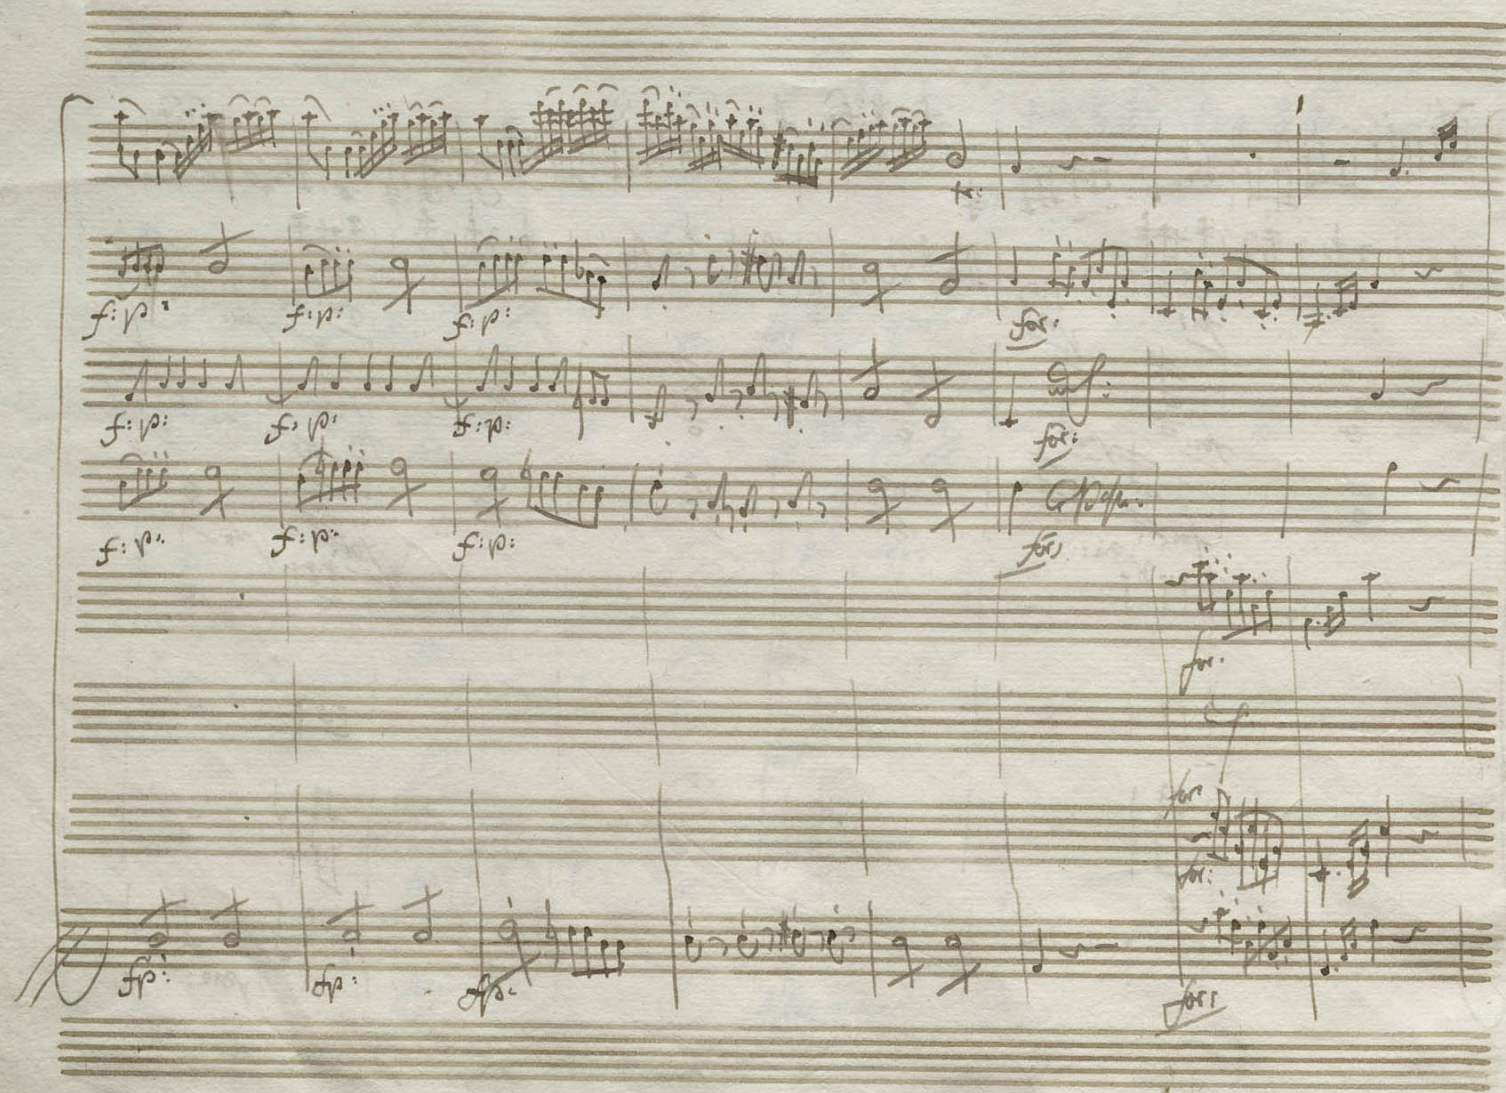 f: p: f: p: f: p: for:
f: p: f: p: f: p: for:
f: p: f: p: f: p: for:
for:
for
for:
fp: fp: fp: for: